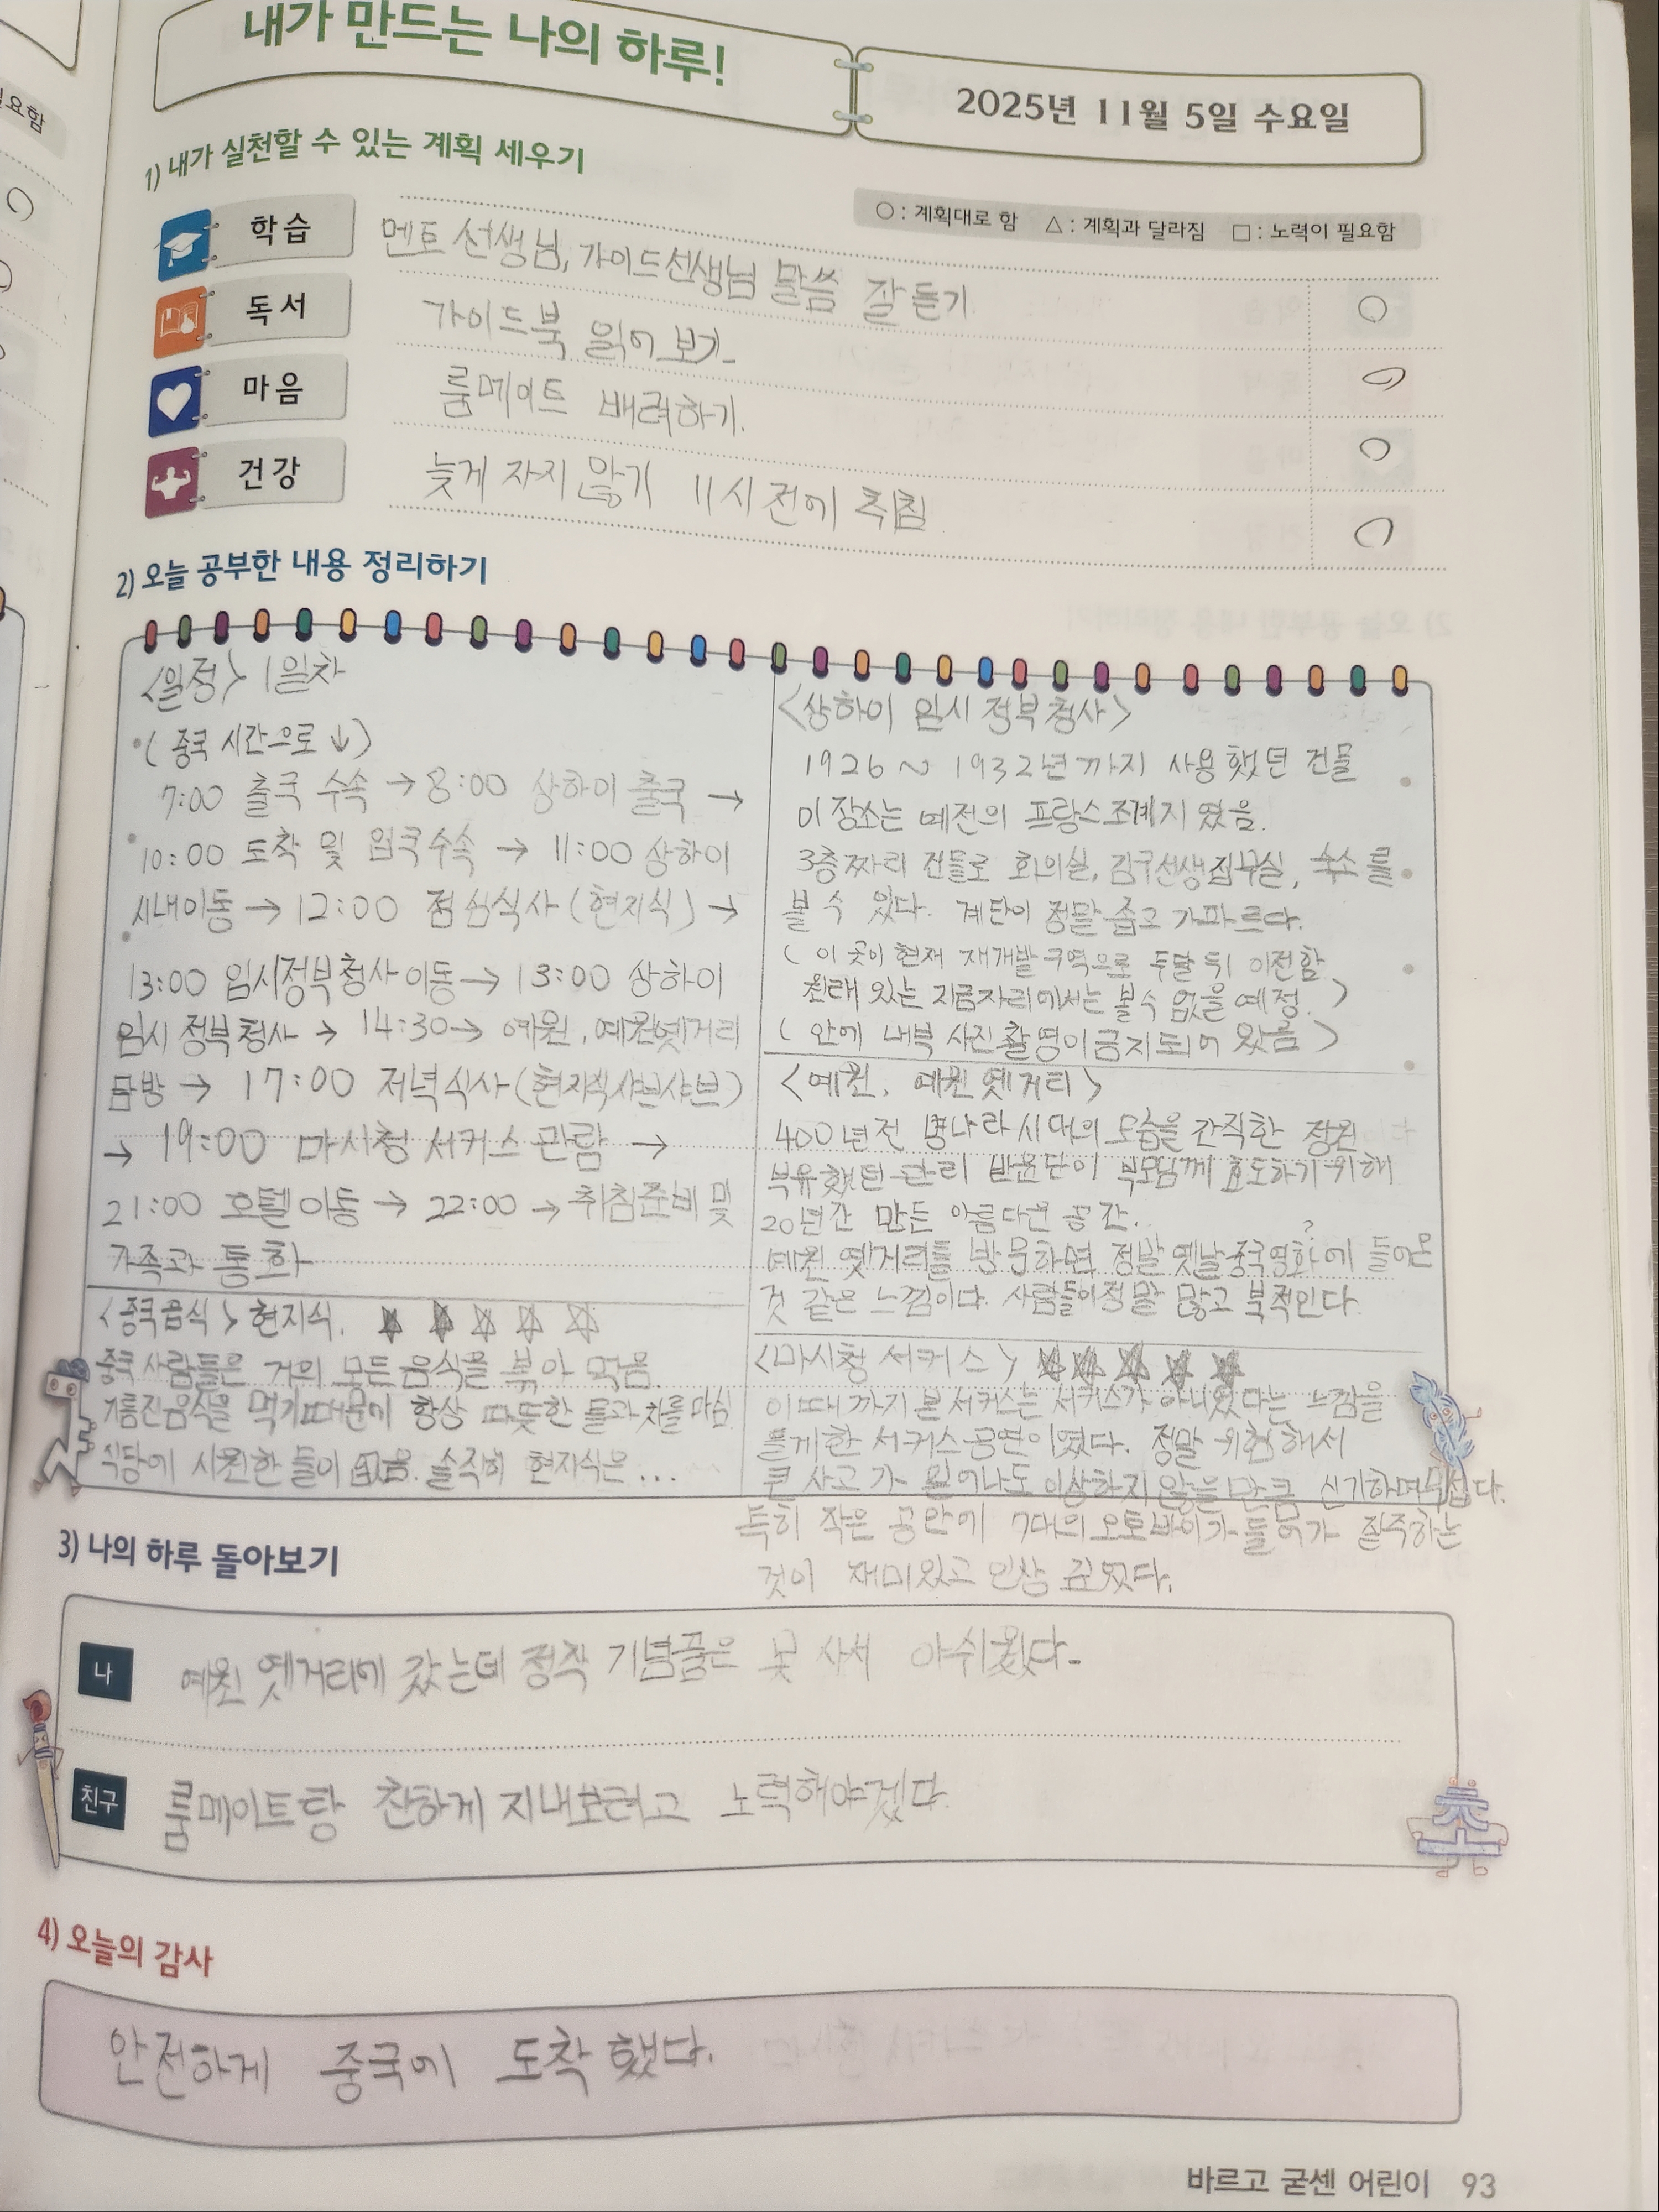 내가 만드는 나의 하루!
2025년 11월 5일 수요일
1) 내가 실천할 수 있는 계획 세우기
○ : 계획대로 함 △ : 계획과 달라짐 □ : 노력이 필요함
학습 멘토 선생님, 가이드선생님 말씀 잘 듣기
독서 가이드북 읽어 보기
마음 룸메이트 배려하기.
건강 늦게 자지 않기 11시 전에 취침
2) 오늘 공부한 내용 정리하기
<일정> 1일차
(중국 시간으로 ↓)
7:00 출국 수속 → 8:00 상하이 출국 →
10:00 도착 및 입국수속 → 11:00 상하이
시내이동 → 12:00 점심식사 (현지식) →
13:00 임시정부청사 이동 → 13:00 상하이
임시 정부청사 → 14:30 → 예원, 예원옛거리
탐방 → 17:00 저녁식사 (현지식샤브샤브)
→ 19:00 마시청 서커스 관람 →
21:00 호텔 이동 → 22:00 → 취침준비 및
가족과 통화
<중국음식> 현지식. ★★☆☆☆
중국 사람들은 거의 모든음식을 볶아 먹음.
기름진음식을 먹기때문에 항상 따뜻한 물과 차를 마심
식당에 시원한 물이 없음. 솔직히 현지식은...
<상하이 임시 정부청사>
1926 ~ 1932년까지 사용했던 건물
이 장소는 예전의 프랑스 조계지 였음.
3층짜리 건물로 회의실, 김구선생집무실, 숙소를
볼 수 있다. 계단이 정말 좁고 가파르다.
(이 곳이 현재 재개발 구역으로 두달 뒤 이전함.
원래 있는 지금자리에서는 볼수 없을 예정.)
(안에 내부 사진촬영이 금지되어 있음)
<예원, 예원 옛거리>
400년전 명나라시대의 모습을 간직한 정원
부유했던 관리 반윤단이 부모님께 효도하기 위해
20년간 만든 아름다운 공간.
?
예원 옛거리를 방문하면 정말 옛날중국영화에 들어온
것 같은 느낌이다. 사람들이정말 많고 북적인다.
<마시청 서커스> ★★★★★
이때까지 본 서커스는 서커스가 아니었다는 느낌을
들게한 서커스 공연이였다. 정말 위험해서
큰 사고가 일어나도 이상하지 않을 만큼 신기하며 무섭다.
특히 작은 공안에 7대의 오토바이가 들어가 질주하는
것이 재미있고 인상 깊었다.
3) 나의 하루 돌아보기
나 예원 옛거리에 갔는데 정작 기념품은 못 사서 아쉬웠다.
친구 룸메이트랑 친하게 지내보려고 노력해야겠다.
4) 오늘의 감사
안전하게 중국에 도착했다.
바르고 굳센 어린이 93